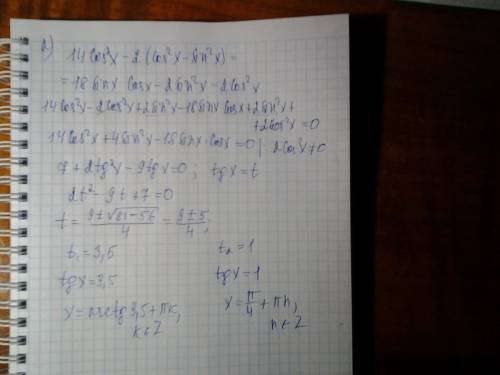 2) 14cos²x - 2(cos²x - sin²x) =
= 18sinx cosx - 2sin²x - 2cos²x
14cos²x - 2cos²x + 2sin²x - 18sinx·cosx + 2sin²x +
+ 2cos²x = 0
14cos²x + 4sin²x - 18sinx·cosx = 0 | 2cos²x ≠ 0
7 + 2tg²x - 9tgx = 0; tgx = t
2t² - 9t + 7 = 0
t = (9 ± √(81 - 56))/4 = (9 ± 5)/4;
t₁ = 3,5 t₂ = 1
tgx = 3,5 tgx = 1
x = arctg3,5 + πk, x = π/4 + πn,
k ∈ Z n ∈ Z